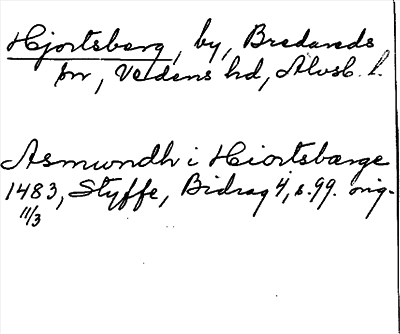 Hjortsberg, by, Bredareds
sn, Vedens hd, Älvsb. l.
Asmundh i Hiortsbærge
1483, Styffe, Bidrag 4, s. 99. orig.
11/3